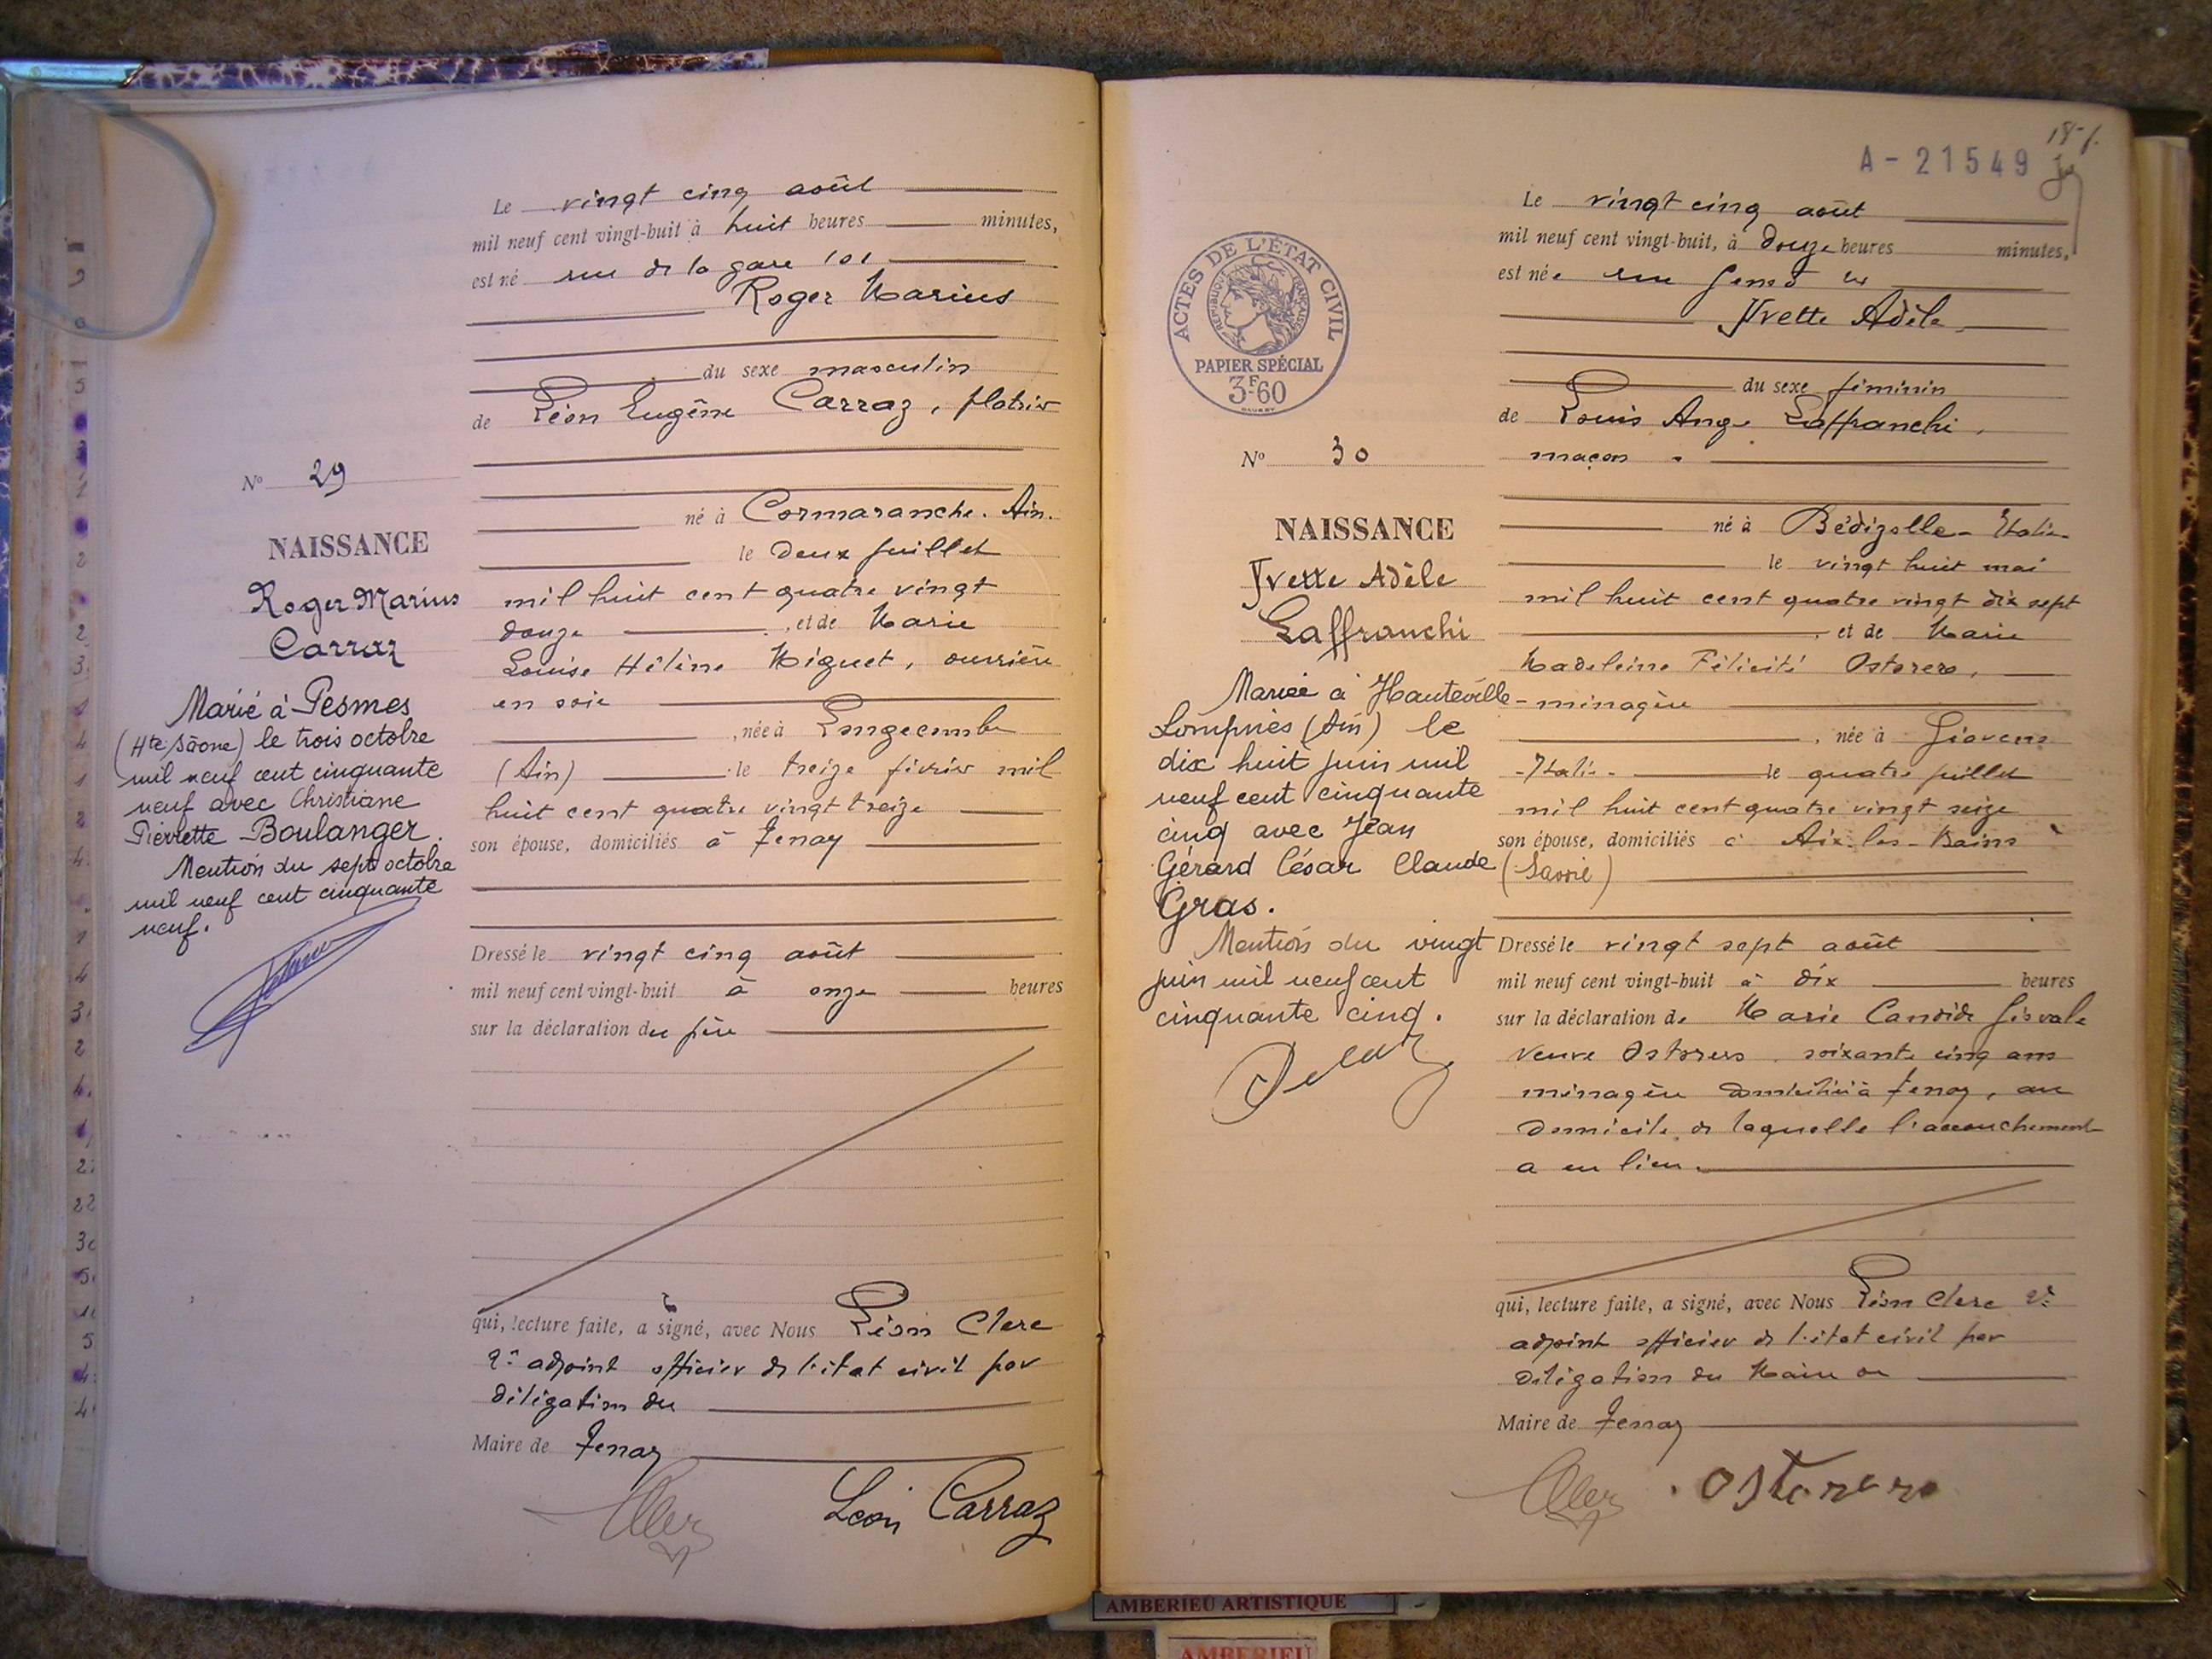 Le vingt cinq août
mil neuf cent vingt-huit à huit heures minutes,
est né rue de la gare 101
Roger Marius
du sexe masculin
de Léon Eugène Carraz, plâtrier
né à Cormaranche. Ain.
le deux juillet
mil huit cent quatre vingt
douze, et de Marie
Louise Hélène Miguet, ouvrière
en soie
, née à
(Ain) le treize février mil
huit cent quatre vingt treize
son épouse, domiciliés à Tenay
Dressé le vingt cinq août
mil neuf cent vingt-huit à onze heures
sur la déclaration du père
qui, lecture faite, a signé, avec Nous Léon Clerc
2e adjoint officier de l'état civil par
délégation du
Maire de Tenay
Léon Carraz
No 29
NAISSANCE
Roger Marius
Carraz
Marié à Pesmes
(Hte Sâone) le trois octobre
mil neuf cent cinquante
neuf avec Christiane
Pierrette Boulanger.
Mention du sept octobre
mil neuf cent cinquante
neuf.
A-21549
ACTES DE L'ÉTAT CIVIL
RÉPUBLIQUE FRANÇAISE
PAPIER SPÉCIAL
3F60
No 30
NAISSANCE
Yvette Adèle
Laffranchi
Mariée à Hauteville-
Lompnès (Ain) le
dix huit juin mil
neuf cent cinquante
cinq avec Jean
Gérard César Claude
Gras.
Mention du vingt
juin mil neuf cent
cinquante cinq.
Le vingt cinq août
mil neuf cent vingt-huit, à douze heures minutes,
est née rue
Yvette Adèle
du sexe féminin
de Louis Ange Laffranchi,
maçon
né à Bédizolle - Italie
le vingt huit mai
mil huit cent quatre vingt dix sept
, et de Marie
Madeleine Félicité Ostorero,
ménagère
, née à
-Italie- le quatre juillet
mil huit cent quatre vingt seize
son épouse, domiciliés à Aix-les-Bains
(Savoie)
Dressé le vingt sept août
mil neuf cent vingt-huit à dix heures
sur la déclaration de Marie Candide
veuve Ostorero soixante cinq ans
ménagère domiciliée à Tenay, au
domicile de laquelle l'accouchement
a eu lieu.
qui, lecture faite, a signé, avec Nous Léon Clerc 2e
adjoint officier de l'état civil par
délégation du Maire
Maire de Tenay
Ostorero
AMBERIEU ARTISTIQUE
AMBERIEU